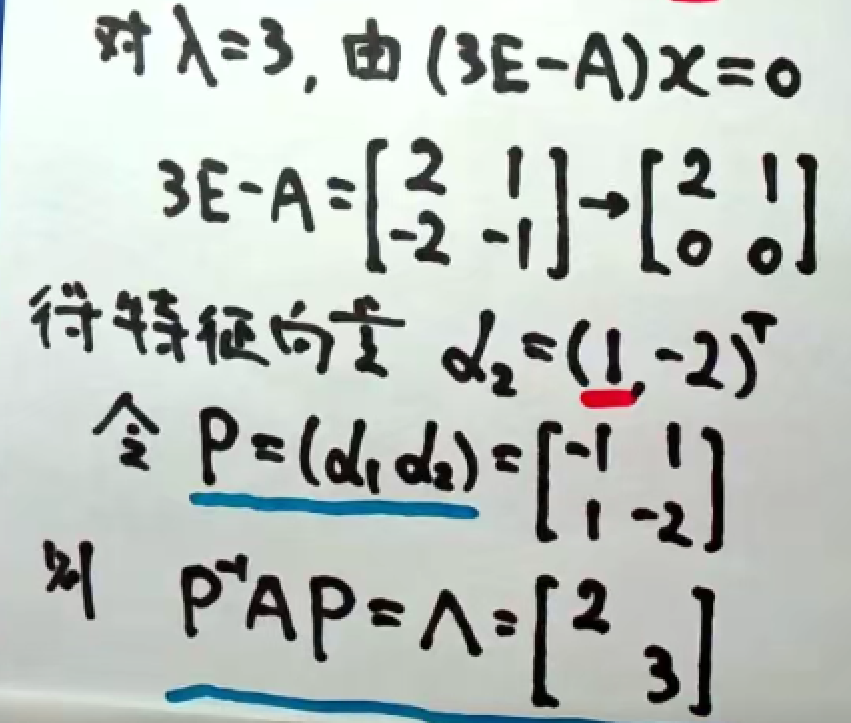 对 λ=3, 由 (3E-A)x=0
3E-A=[2 1; -2 -1]→[2 1; 0 0]
得特征向量 α₂=(1,-2)ᵀ
令 P=(α₁ α₂)=[-1 1; 1 -2]
则 P⁻¹AP=Λ=[2 ; 3]